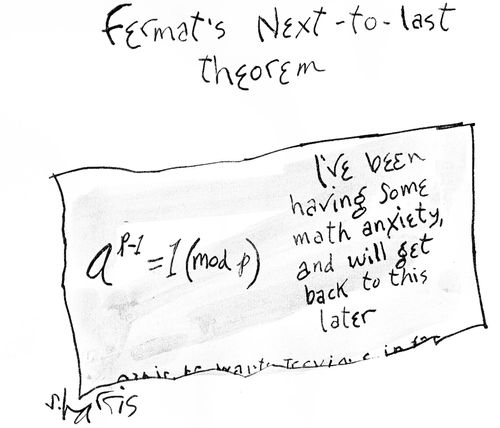 Fermat's Next-to-last
theorem
I've been
having some
math anxiety,
and will get
back to this
later
a^{p-1} = 1 (mod p)
s.harris